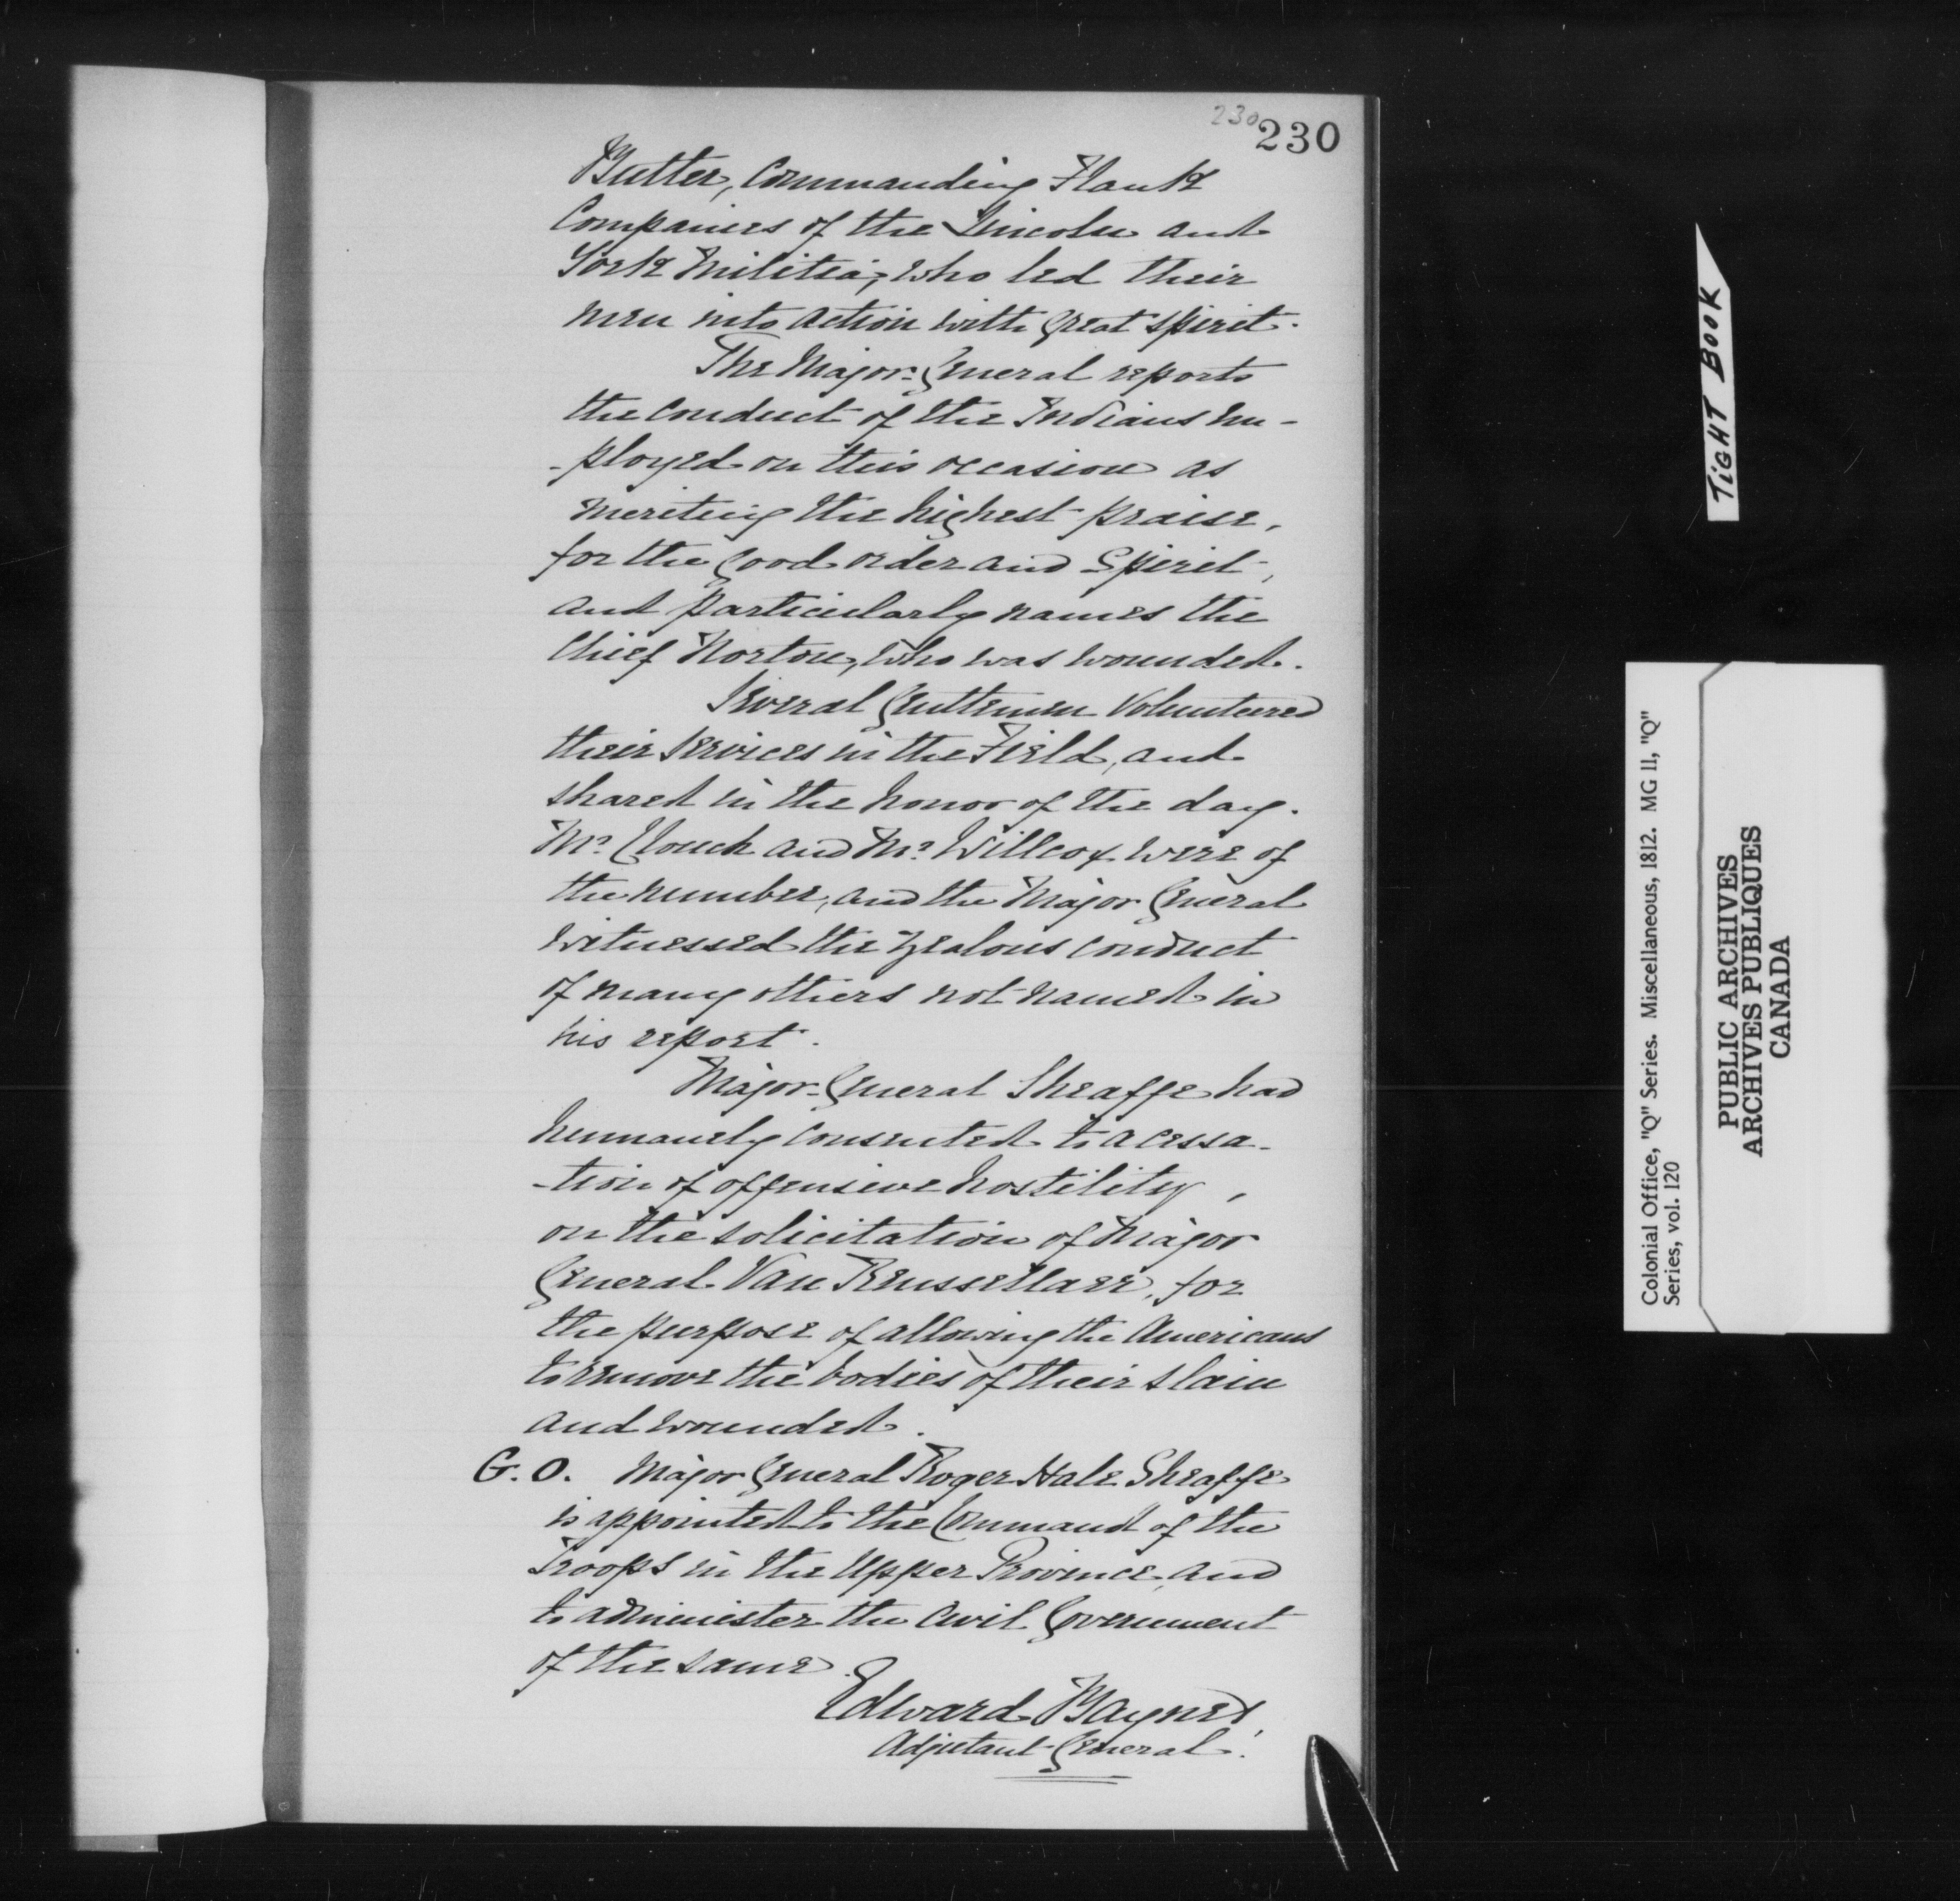 230
230
Butler, Commanding Flank
Companies of the Lincoln and
York Militia, who led their
men into action with great spirit.
The Major-General reports
the conduct of the Indians em-
-ployed on this occasion as
meriting the highest praise,
for the good order and Spirit,
and particularly names the
Chief Norton, who was wounded.
Several Gentlemen Volunteered
their services in the Field, and
shared in the honor of the day.
Mr. Clouch and Mr. Willcox were of
the number, and the Major General
witnessed the zealous conduct
of many others not named in
his report.
Major-General Sheaffe had
humanely consented to a cessa-
-tion of offensive hostility,
on the solicitation of Major
General Van Renssellaer, for
the purpose of allowing the Americans
to remove the bodies of their slain
and wounded.
G. O. Major General Roger Hale Sheaffe
is appointed to the Command of the
Troops in the Upper Province, and
to administer the Civil Government
of the same.
Edward Baynes,
Adjutant-General.
TIGHT BOOK
Colonial Office, "Q" Series. Miscellaneous, 1812. MG 11, "Q"
Series, vol. 120
PUBLIC ARCHIVES
ARCHIVES PUBLIQUES
CANADA